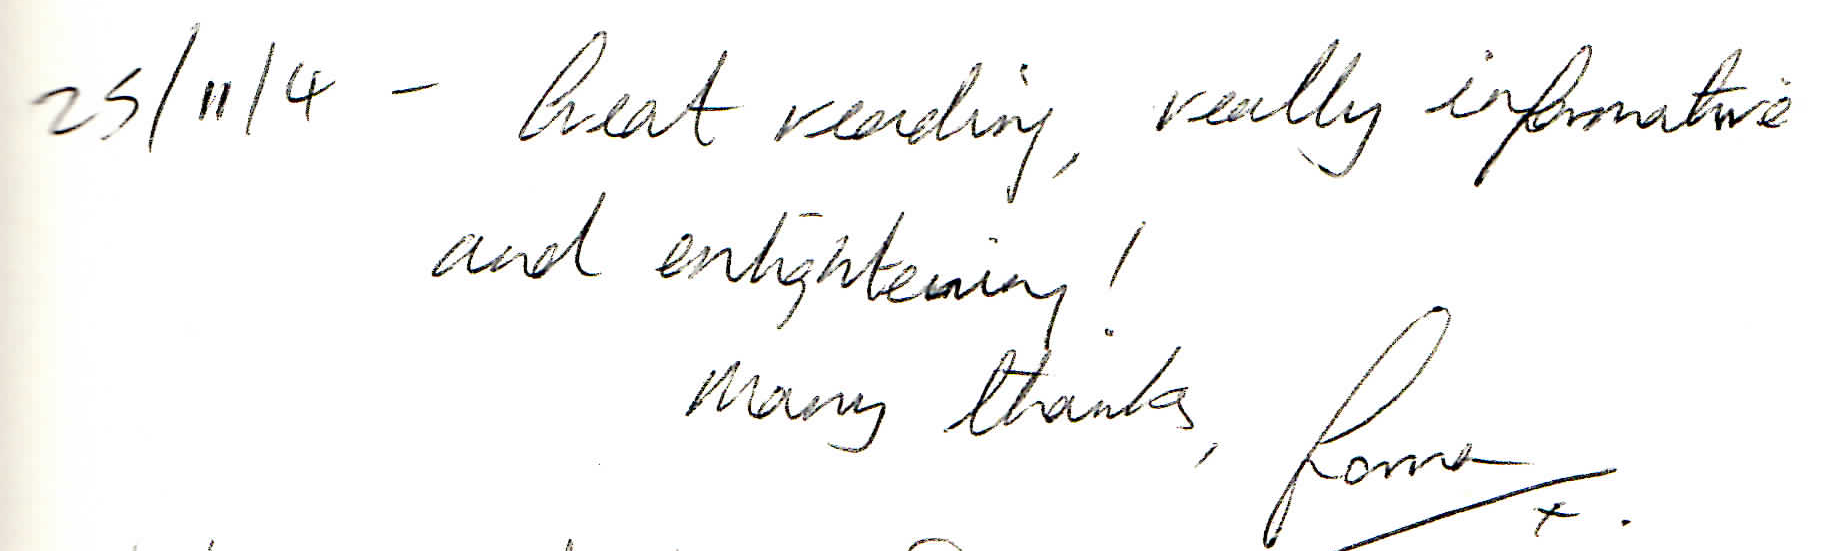 25/11/4 - Great reading, really informative
and enlightening!
Many thanks, Lorna
x.